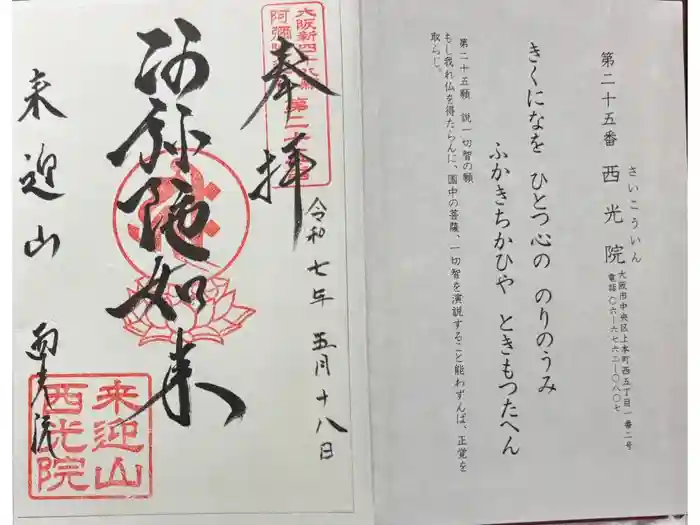 第二十五番 西光院
さいこういん
大阪市中央区上本町西五丁目一番二号
電話〇六-六七六二-〇八〇七
きくになを ひとつ心の のりのうみ
ふかきちかひや ときもつたへん
第二十五願 説一切智の願
もし我れ仏を得たらんに、国中の菩薩、一切智を演説すること能わずんば、正覚を
取らじ。
奉拝
令和七年五月十八日
阿弥陀如来
来迎山
西光院
来迎山
西光院